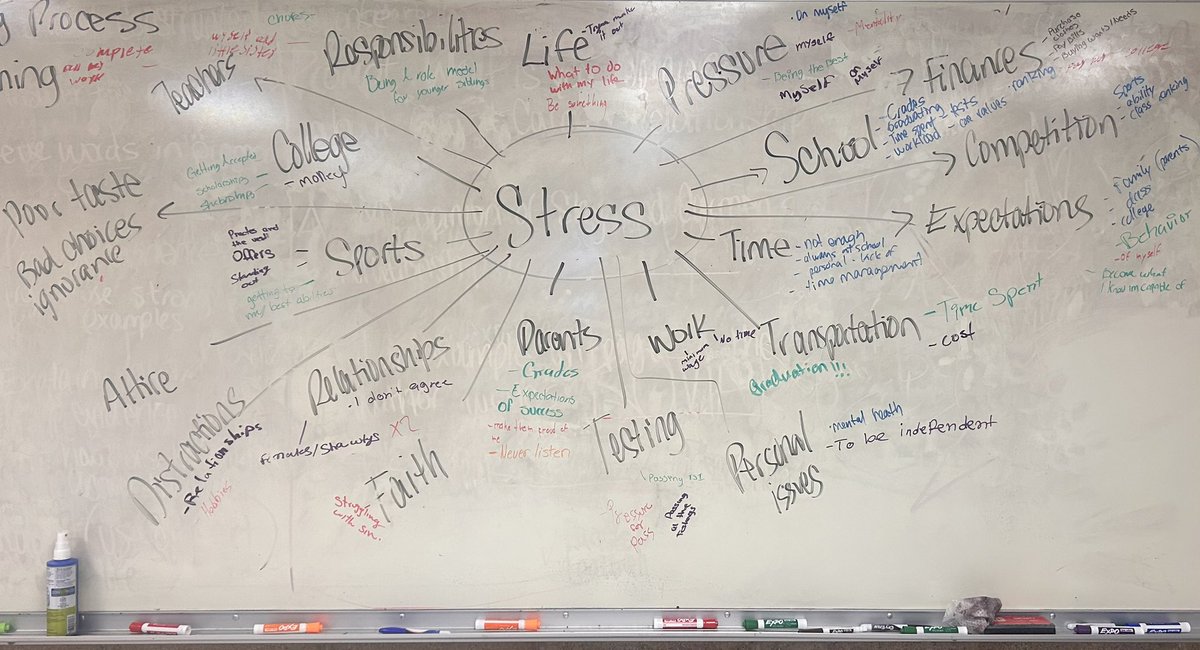 g Process
ning
complete
Teachers
chores
myself and
little sisters
Responsibilities
Being a role model
for younger siblings
Life
- Tryna make
it out
what to do
with my life
Be something
Pressure
- On myself
myself
- Mentality
- Being the best
myself
on
myself
Finances
- Purchase
clothes
- Pay bills
- Buying wants/needs
School
- Grades
- Graduating
- Time spent
- Tests
- workload
- ranking
Competition
- Sports
- ability
- class ranking
College
Getting Accepted
scholarships
- money
Stress
Expectations
- Family (parents)
- dress
- college
- Behavior
- Of myself
- Become what
I know im capable of
Poor taste
Bad choices
ignorance
Sports
Offers
Standing
out
getting to
my best abilities
Time
- not enough
- always at school
- personal - lack of
- time management
Transportation
- Time Spent
- cost
Graduation!!!
Attire
Distractions
- Relationships
Hobbies
Relationships
- I don't agree
Females/Shawtys
x2
Faith
Struggling
with sin.
Parents
- Grades
- Expectations
of success
- make them proud of
me
- Never listen
Work
minimum
wage
No time
Testing
Pressure
for
pass
Passing
all the
Personal
issues
- mental health
- To be independent
EXPO
EXPO